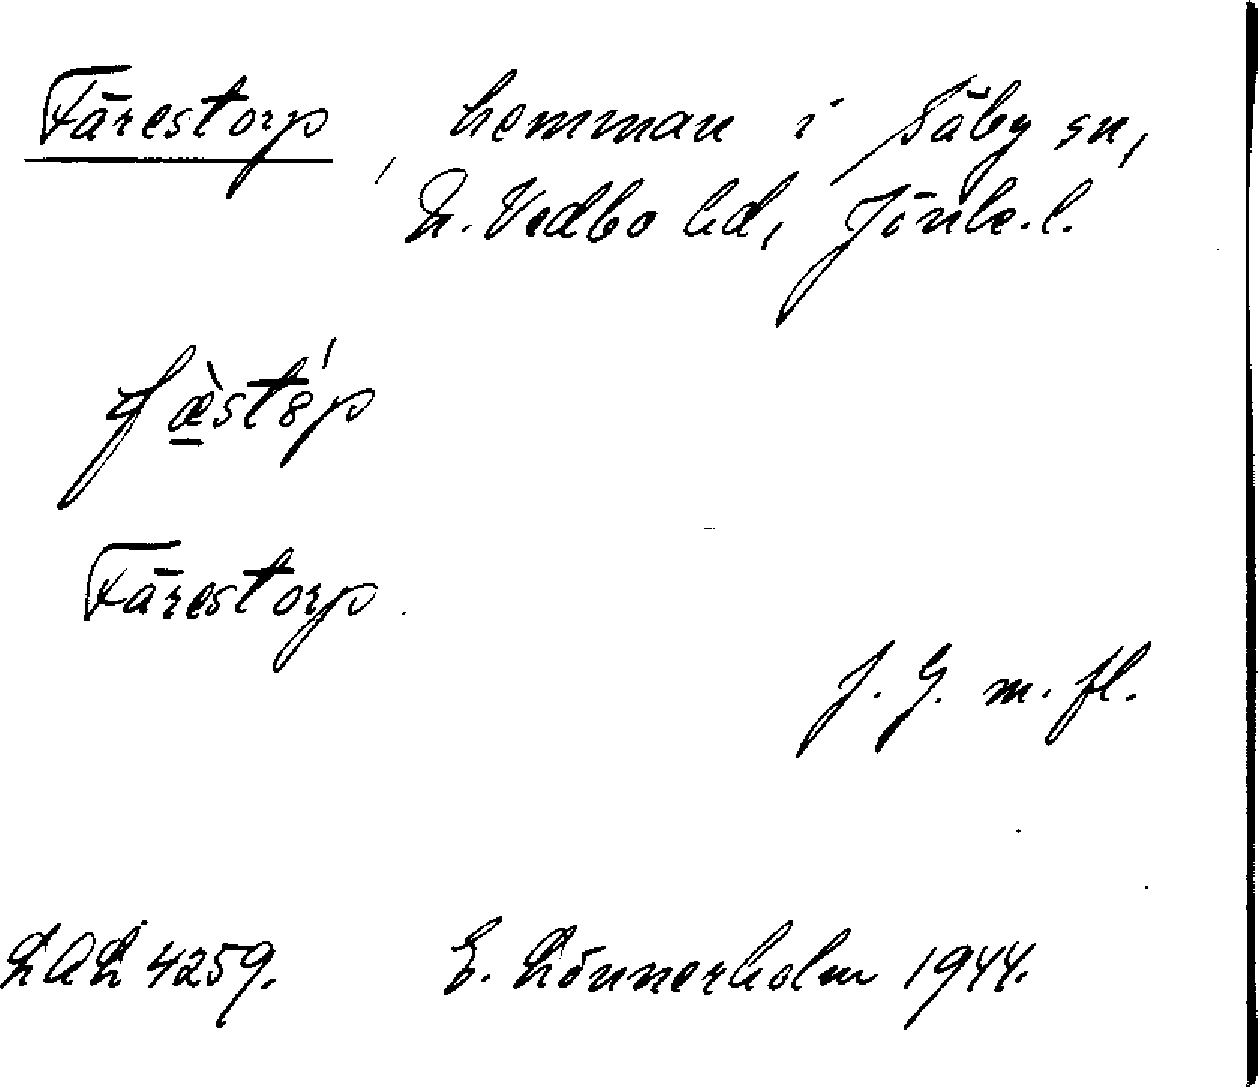 Färestorp, hemman i Säby sn,
N. Vedbo hd, Jönk. l.
fæ̀stó̱p
Färestorp.
J. G. m. fl.
LAL 4259. E. Lönnerholm 1944.